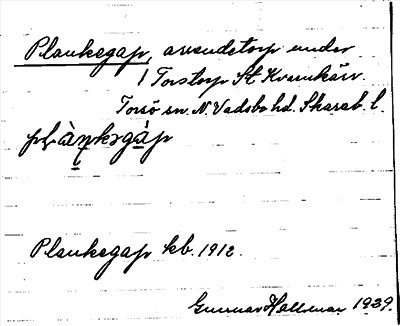 Plankegap, arendetorp under
1 Torstorp St. Kvarnkärr.
Torsö sn. N. Vadsbo hd. Skarab. l.
Plankegap kb. 1912.
Gunnar Hallman 1929.